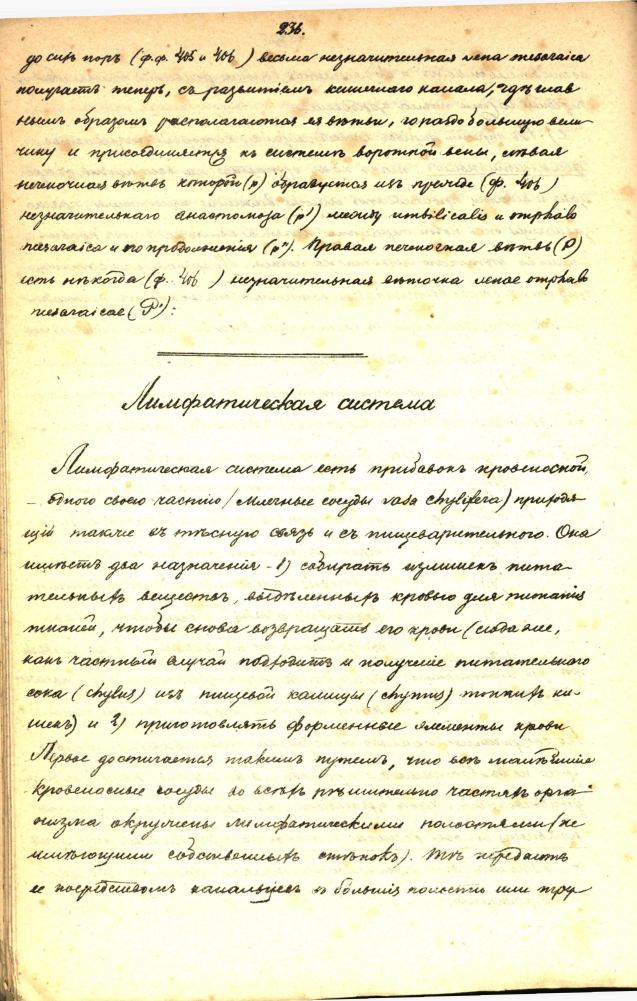 236.
до сихъ поръ (ф.ф. 405 и 406) весьма незначительная vena mesaraica
получаетъ теперь, съ развитіемъ кишечнаго канала, гдѣ глав
нымъ образомъ располагаются ея вѣтви, гораздо большую вели-
чину и присоединяется къ системѣ воротной вены, лѣвая
печеночная вѣтвь которой (p) образуется изъ прежде (ф. 406)
незначительнаго анастомоза (p') между umbilicalis и omphalo
mesaraica и его продолженія (p''). Правая печеночная вѣтвь (P)
есть нѣкогда (ф. 406) незначительная вѣточка venae omphalo
mesaraicae (P'):
Лимфатическая система
Лимфатическая система есть прибавокъ кровеносной,
– одною своею частію (млечные сосуды vasa chylifera) приходя-
щій также въ тѣсную связь и съ пищеварительного. Она
имѣетъ два назначенія - 1) собирать излишекъ пита-
тельныхъ веществъ, выдѣленныхъ кровью для питанія
тканей, чтобы снова возвращать его крови (сюда же,
какъ частный случай подходитъ и полученіе питательнаго
сока (chylus) изъ пищевой кашицы (chymus) тонкихъ ки-
шекъ) и 2) приготовлять форменные элементы крови
Первое достигается такимъ путемъ, что всѣ малѣйшіе
кровеносные сосуды во всѣхъ рѣшительно частяхъ орга-
низма окружены лимфатическими полостями (не
имѣющими собственныхъ стѣнокъ). Тѣ передаютъ
ее посредствомъ канальцевъ въ большія полости или тру-